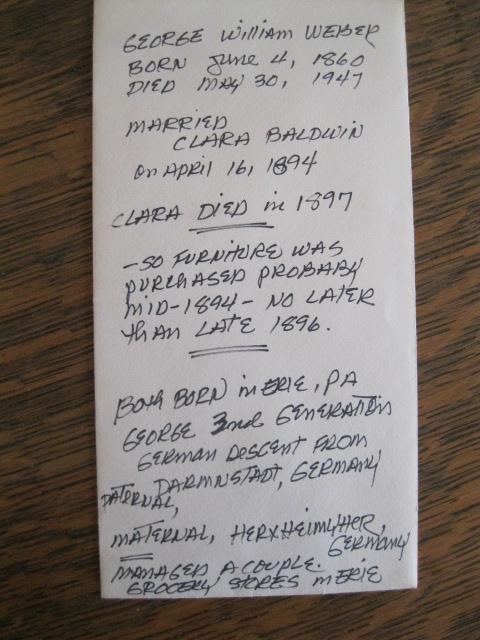 GEORGE William WEBER
BORN June 4, 1860
DIED MAY 30, 1947
MARRIED
CLARA BALDWIN
on APRIL 16, 1894
CLARA DIED in 1897
-SO FURNITURE WAS
PURCHASED PROBABY
MID-1894- NO LATER
than LATE 1896.
Both BORN in ERIE, PA
GEORGE 2nd GENERATION
GERMAN DESCENT FROM
DARMNSTADT, GERMANY
PATERNAL,
MATERNAL, HERXHEIMYHER,
GERMANY
MANAGED A COUPLE.
GROCERY STORES in ERIE